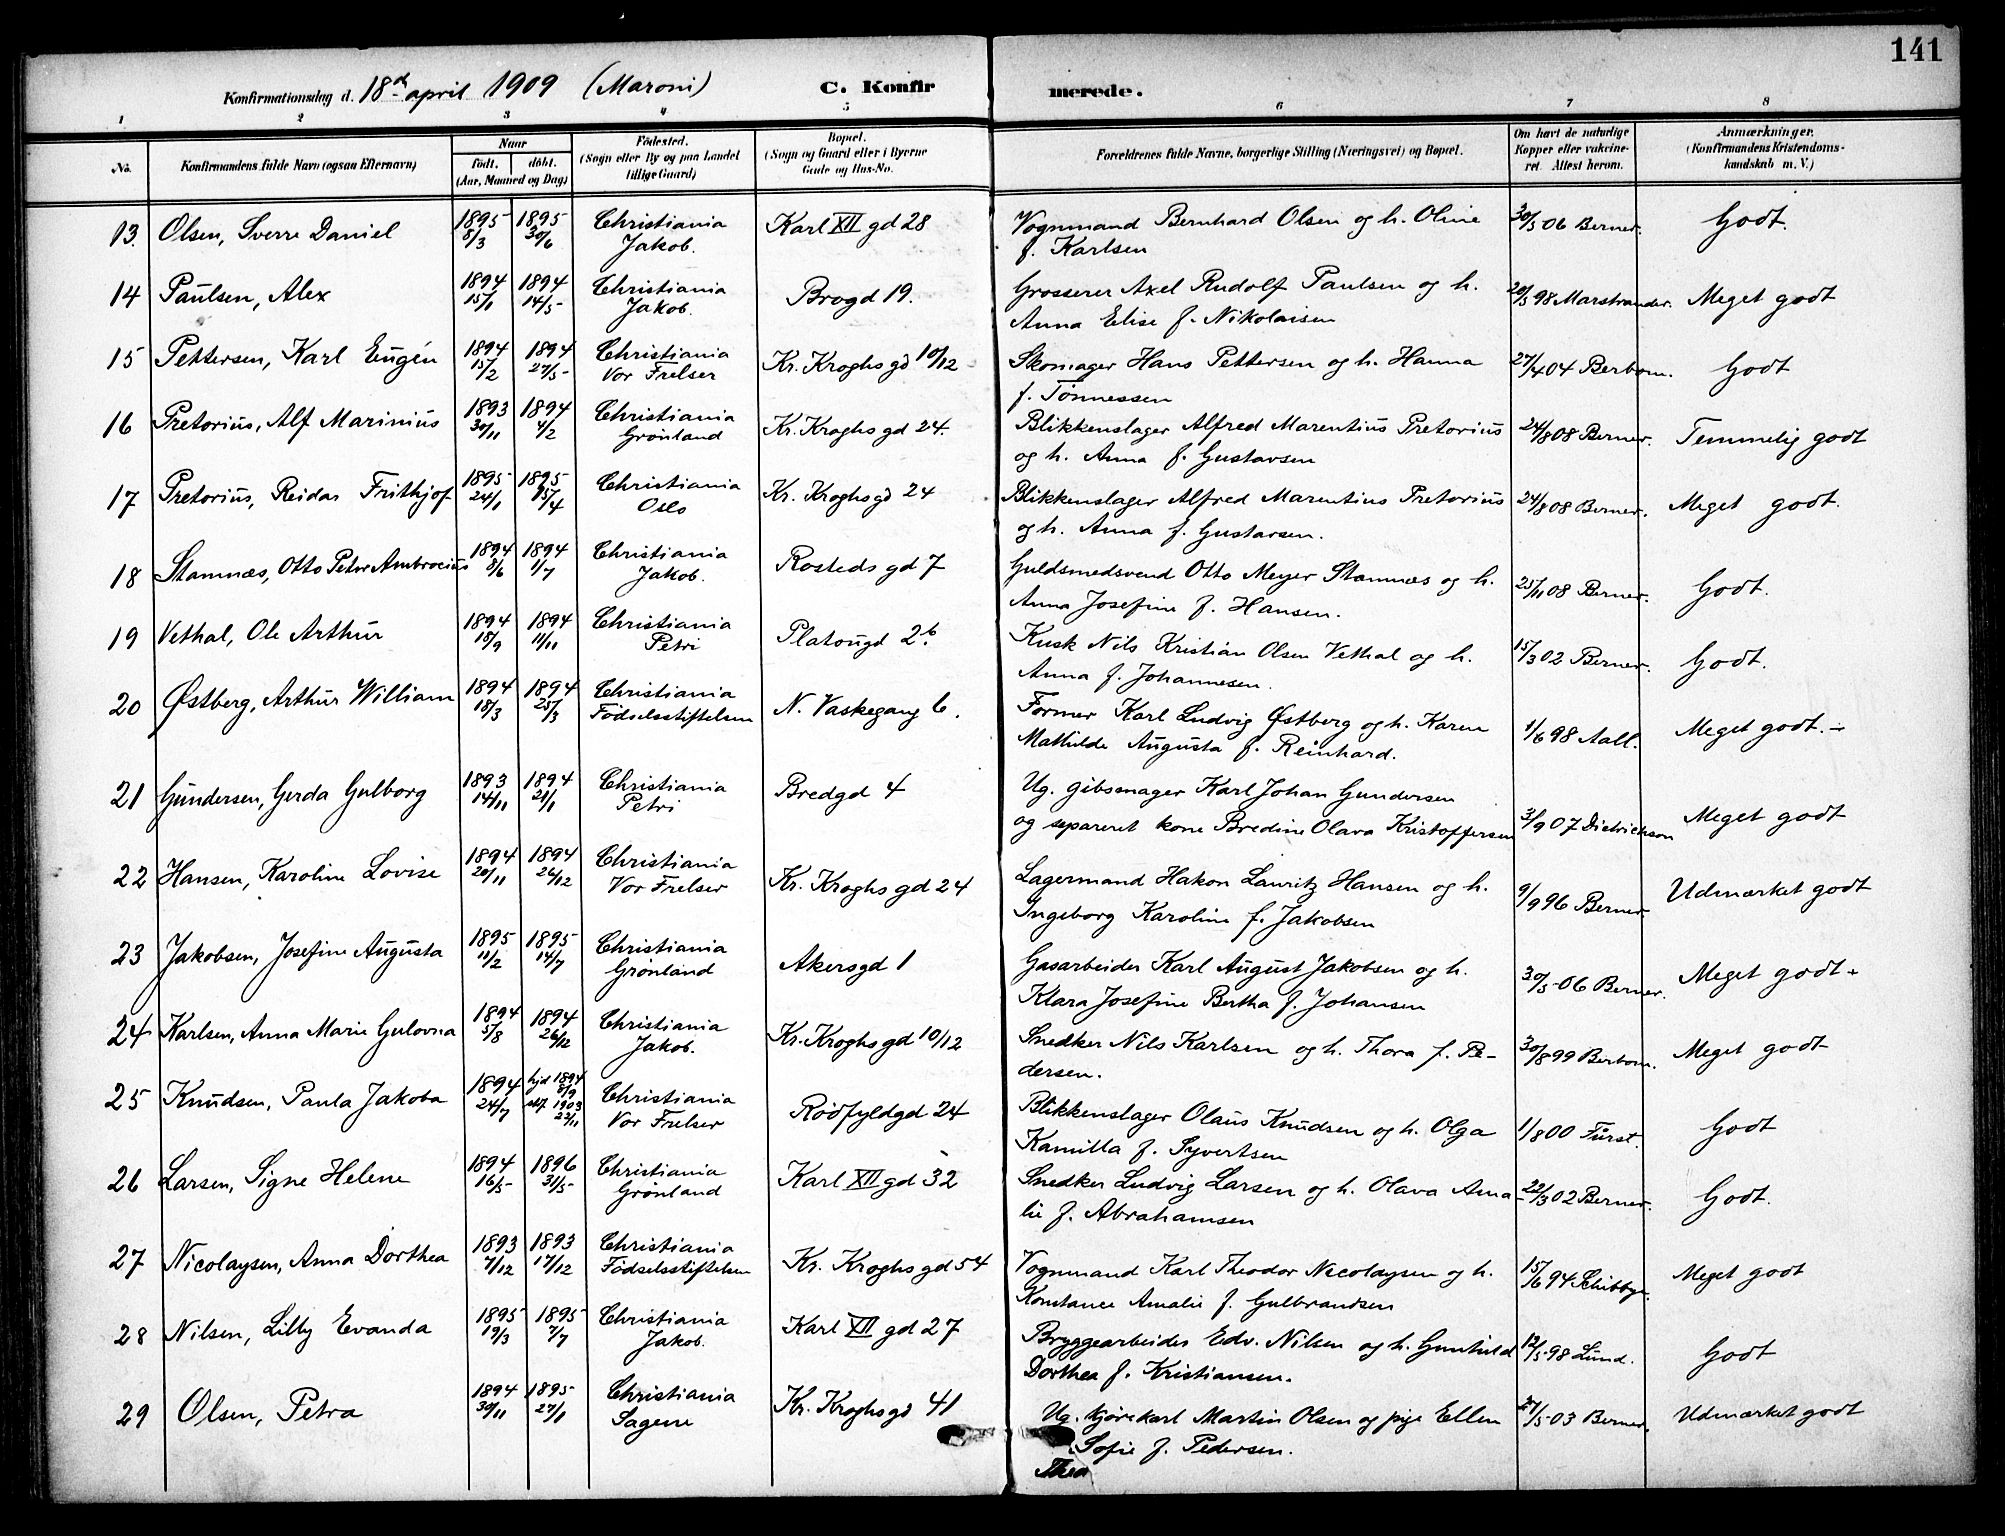 141
Konfirmationsdag d. 18d april 1909 (Maroni) C. Konfirmerede.
1 2 3 4 5 6 7 8
No. Konfirmandens fulde Navn (ogsaa Efternavn) Naar født. døbt. (Aar, Maaned og Dag) Fødested. (Sogn eller By og paa Landet tillige Gaard) Bopæl. (Sogn og Gaard eller i Byerne Gade og Hus-No. Forældrenes fulde Navne, borgerlige Stilling (Næringsvei) og Bopæl. Om havt de naturlige Kopper eller vakcineret. Attest herom. Anmærkninger. (Konfirmandens Kristendomskundskab m. V.)
13. Olsen, Sverre Daniel 1895 8/3 1895 30/6 Christiania Jakob. Karl XII gd 28 Vognmand Bernhard Olsen og h. Oline f. Karlsen 30/5 06 Berner. Godt.
14 Paulsen, Alex 1894 15/1 1894 14/5 Christiania Jakob. Brogd 19. Grosserer Axel Rudolf Paulsen og h. Anna Elise f. Nikolaisen 20/5 98 Marstrander. Meget godt
15 Pettersen, Karl Eugén 1894 15/2 1894 27/5 Christiania Vor Frelser Kr. Kroghs gd 10/12 Skomager Hans Pettersen og h. Hanna f. Tønnessen 27/4 04 Berbom. Godt
16 Pretorius, Alf Marinius 1893 30/11 1894 4/2 Christiania Grønland Kr. Kroghs gd 24. Blikkenslager Alfred Marentius Pretorius og h. Anna f. Gustavsen 24/8 08 Berner. Temmelig godt
17 Pretorius, Reidar Frithjof 1895 24/1 1895 15/4 Christiania Oslo Kr. Kroghs gd 24 Blikkenslager Alfred Marentius Pretorius og h. Anna f. Gustavsen. 24/8 08 Berner. Meget godt.
18 Stamnæs, Otto Peter Ambrocius 1894 8/6 1894 1/7 Christiania Jakob. Rosteds gd 7 Guldsmedsvend Otto Meyer Stamnæs og h. Anna Josefine f. Hansen. 25/11 08 Berner. Godt.
19 Vethal, Ole Arthur 1894 18/9 1894 11/11 Christiania Petri Platougd 2b. Kusk Nils Kristian Olsen Vethal og h. Anna f. Johannesen. 15/3 02 Berner. Godt.
20 Østberg, Arthur William 1894 18/3 1894 25/3 Christiania Fødselsstiftelsen N. Vaskegang 6. Former Karl Ludvig Østberg og h. Karen Mathilde Augusta f. Reinhard. 1/6 98 Aall. Meget godt. -
21 Gundersen, Gerda Gulborg 1893 14/11 1894 21/1 Christiania Petri Bredgd 4 Ug. gibsmager Karl Johan Gundersen og separeret kone Bredine Olava Kristoffersen 3/9 07 Dietrichson Meget godt
22 Hansen, Karoline Lovise 1894 20/11 1894 26/12 Christiania Vor Frelser Kr. Kroghs gd 24 Lagermand Hakon Lauritz Hansen og h. Ingeborg Karoline f. Jakobsen 9/9 96 Berner. Udmærket godt
23 Jakobsen, Josefine Augusta 1895 11/2 1895 14/7 Christiania Grønland Akersgd 1 Gasarbeider Karl August Jakobsen og h. Klara Josefine Bertha f. Johansen 30/5 06 Berner. Meget godt +
24 Karlsen, Anna Marie Gulovna 1894 5/8 1894 26/12 Christiania Jakob. Kr. Kroghs gd 10/12 Snedker Nils Karlsen og h. Thora f. Pedersen. 30/8 99 Berbom. Meget godt
25 Knudsen, Paula Jakoba 1894 24/7 hjd 1894 8/9 stf. 1903 22/11 Christiania Vor Frelser Rødfyldgd 24 Blikkenslager Olaus Knudsen og h. Olga Kamilla f. Syvertsen 1/8 00 Fürst. Godt
26 Larsen, Signe Helene 1894 16/5 1896 31/5 Christiania Grønland Karl XII gd 32 Snedker Ludvig Larsen og h. Olava Amalie f. Abrahamsen 22/3 02 Berner. Godt.
27 Nicolaysen, Anna Dorthea 1893 7/12 1893 17/12 Christiania Fødselsstiftelsen Kr. Kroghs gd 54 Vognmand Karl Theodor Nicolaysen og h. Konstance Amalie f. Gulbrandsen 15/6 94 Schibbye. Meget godt
28 Nilsen, Lilly Evanda 1895 19/3 1895 7/7 Christiania Jakob. Karl XII gd 27 Bryggearbeider Edv. Nilsen og h. Gunhild Dorthea f. Kristiansen. 12/5 98 Lund. Godt
29 Olsen, Petra 1894 30/11 1895 27/1 Christiania Sagene Kr. Kroghs gd 41 Ug. kjørekarl Martin Olsen og pige Ellen Sofie f. Pedersen. Thea 27/5 03 Berner. Udmærket godt